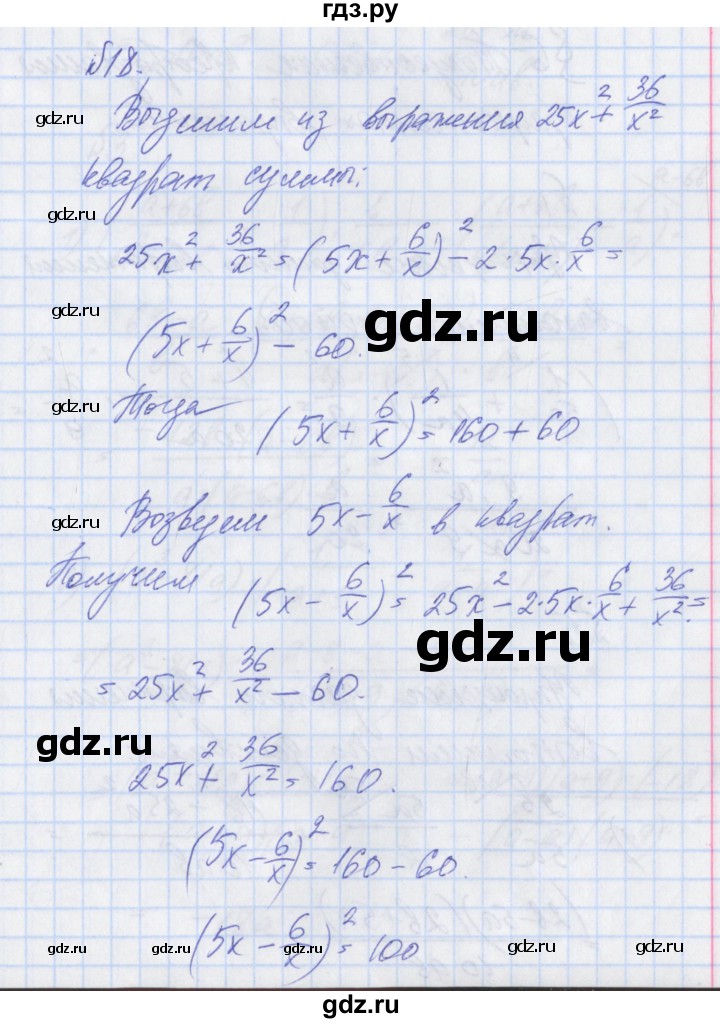 гдз.ру
№18.
gdz.ru Выделим из выражения 25x² + 36/x²
квадрат суммы:
gdz.ru
25x² + 36/x² = (5x + 6/x)² - 2·5x·6/x =
gdz.ru
(5x + 6/x)² - 60.
gdz.ru
gdz.ru Тогда (5x + 6/x)² = 160 + 60
gdz.ru Возведем 5x - 6/x в квадрат.
Получим (5x - 6/x)² = 25x² - 2·5x·6/x + 36/x² =
gdz.ru
= 25x² + 36/x² - 60.
gdz.ru
25x² + 36/x² = 160.
(5x - 6/x)² = 160 - 60.
(5x - 6/x)² = 100
gdz.ru gdz.ru gdz.ru gdz.ru gdz.ru
gdz.ru